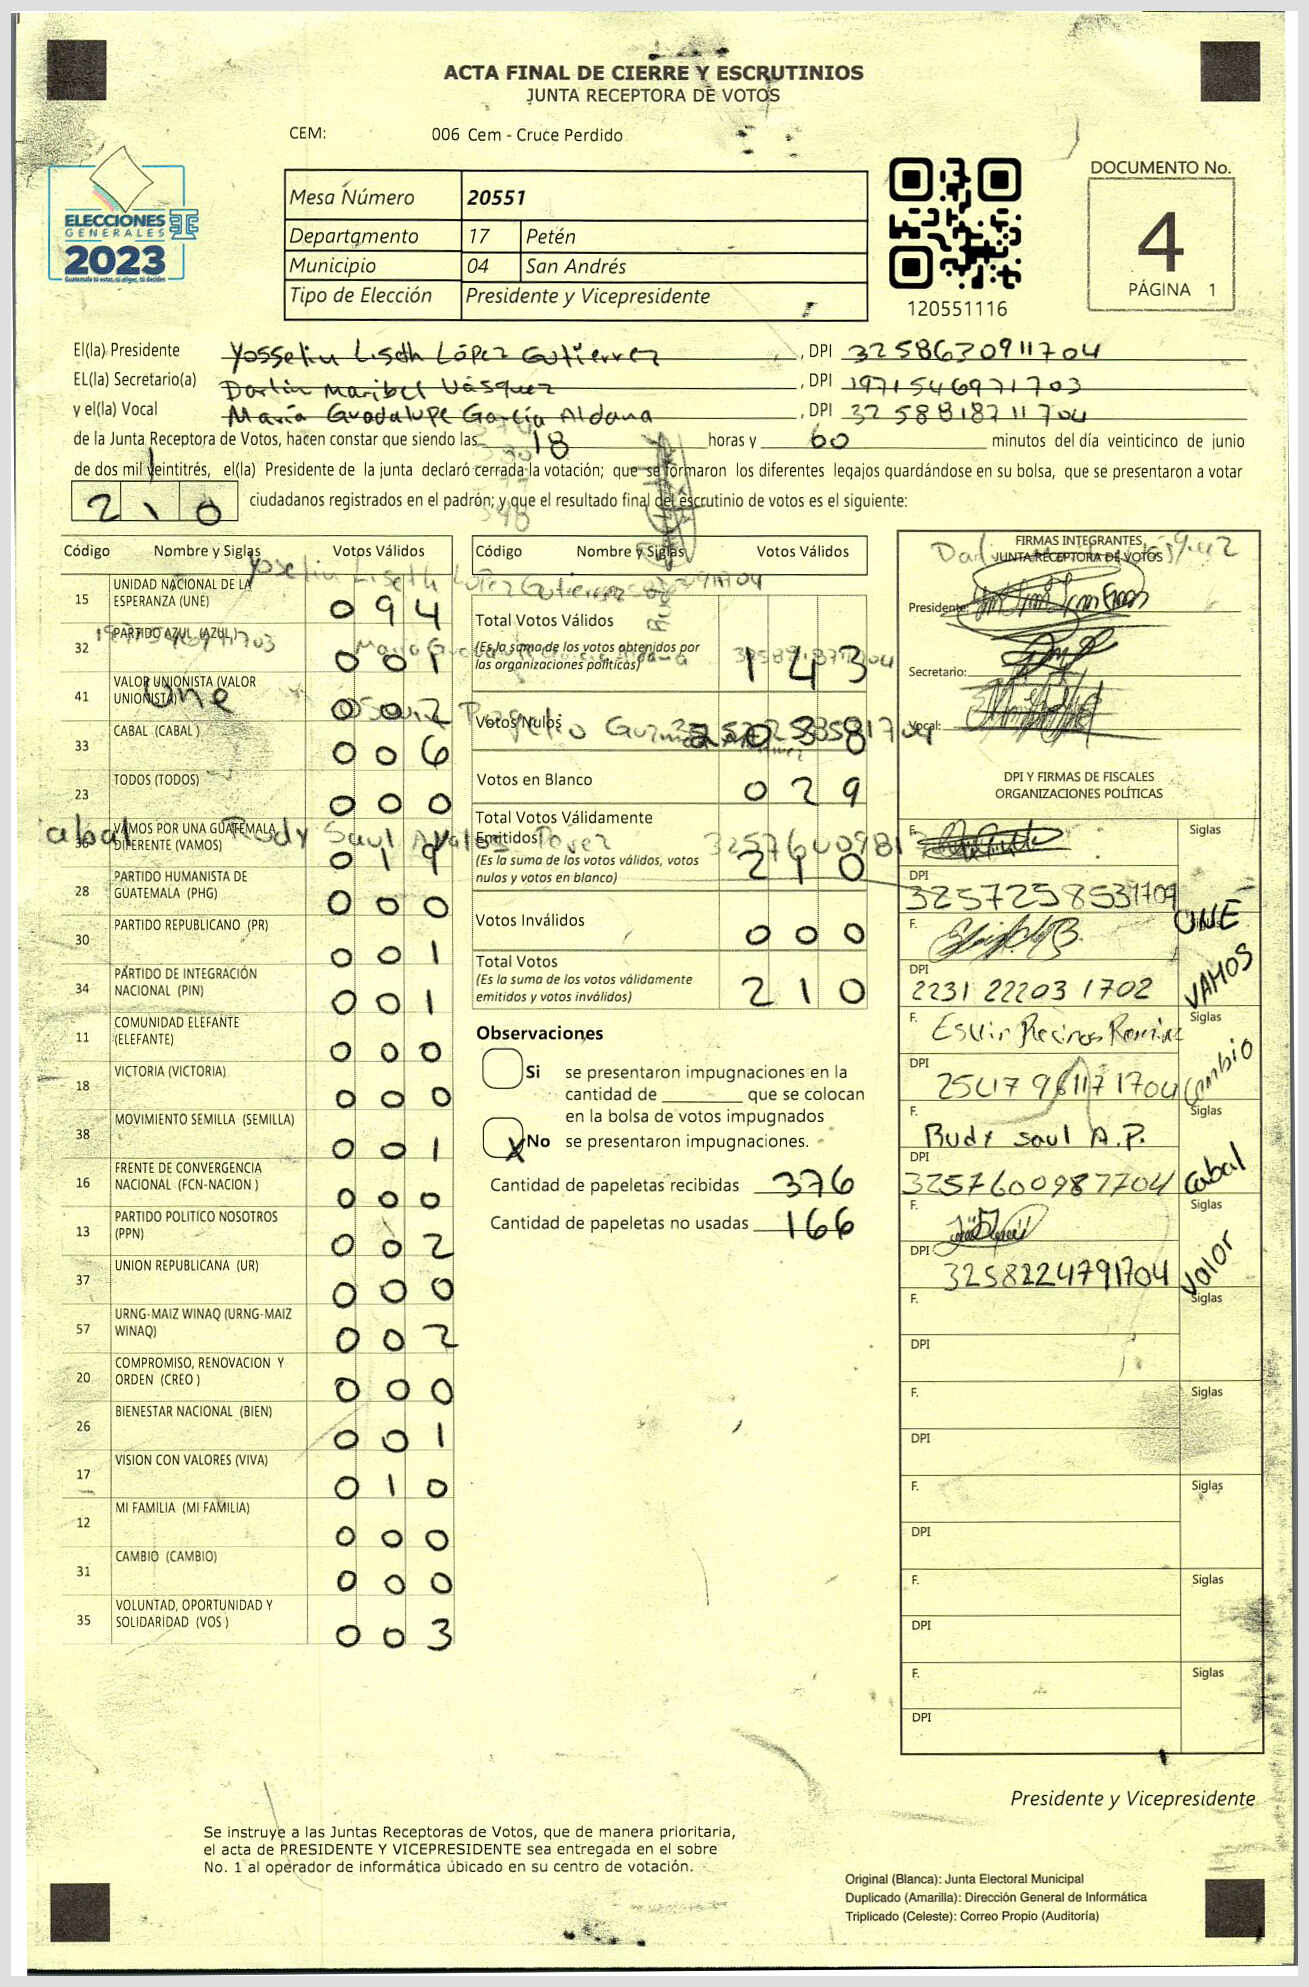 ACTA FINAL DE CIERRE Y ESCRUTINIOS
JUNTA RECEPTORA DE VOTOS
CEM: 006 Cem - Cruce Perdido
ELECCIONES
GENERALES
2023
Guatemala tú votas, tú eliges, tú decides
Mesa Número 20551
Departamento 17 Petén
Municipio 04 San Andrés
Tipo de Elección Presidente y Vicepresidente
120551116
DOCUMENTO No.
4
PÁGINA 1
El(la) Presidente Yosselin Liseth López Gutierrez, DPI 3258630911704
EL(la) Secretario(a) Darlin Maribel Vásquez, DPI 1971546971703
y el(la) Vocal María Guadalupe García Aldana, DPI 3258818711704
de la Junta Receptora de Votos, hacen constar que siendo las 18 horas y 60 minutos del día veinticinco de junio
de dos mil veintitrés, el(la) Presidente de la junta declaró cerrada la votación; que se formaron los diferentes legajos quardándose en su bolsa, que se presentaron a votar
210 ciudadanos registrados en el padrón; y que el resultado final del escrutinio de votos es el siguiente:
Código Nombre y Siglas Votos Válidos
15 UNIDAD NACIONAL DE LA ESPERANZA (UNE) 094
32 PARTIDO AZUL (AZUL) 001
41 VALOR UNIONISTA (VALOR UNIONISTA) 002
33 CABAL (CABAL ) 006
23 TODOS (TODOS) 000
36 VAMOS POR UNA GUATEMALA DIFERENTE (VAMOS) 019
28 PARTIDO HUMANISTA DE GUATEMALA (PHG) 000
30 PARTIDO REPUBLICANO (PR) 001
34 PARTIDO DE INTEGRACIÓN NACIONAL (PIN) 001
11 COMUNIDAD ELEFANTE (ELEFANTE) 000
18 VICTORIA (VICTORIA) 000
38 MOVIMIENTO SEMILLA (SEMILLA) 001
16 FRENTE DE CONVERGENCIA NACIONAL (FCN-NACION ) 000
13 PARTIDO POLITICO NOSOTROS (PPN) 002
37 UNION REPUBLICANA (UR) 000
57 URNG-MAIZ WINAQ (URNG-MAIZ WINAQ) 002
20 COMPROMISO, RENOVACION Y ORDEN (CREO ) 000
26 BIENESTAR NACIONAL (BIEN) 001
17 VISION CON VALORES (VIVA) 010
12 MI FAMILIA (MI FAMILIA) 000
31 CAMBIO (CAMBIO) 000
35 VOLUNTAD, OPORTUNIDAD Y SOLIDARIDAD (VOS ) 003
Yoselin Liseth López Gutierrez
1971546971703
une
cabal Rudy Saul Avalos Pérez
Código Nombre y Siglas Votos Válidos
Total Votos Válidos
(Es la suma de los votos obtenidos por
las organizaciones políticas) 143
Votos Nulos 038
Votos en Blanco 029
Total Votos Válidamente
Emitidos
(Es la suma de los votos válidos, votos
nulos y votos en blanco) 210
Votos Inválidos 000
Total Votos
(Es la suma de los votos válidamente
emitidos y votos inválidos) 210
Observaciones
Si se presentaron impugnaciones en la
cantidad de ________ que se colocan
en la bolsa de votos impugnados
X No se presentaron impugnaciones.
Cantidad de papeletas recibidas 376
Cantidad de papeletas no usadas 166
FIRMAS INTEGRANTES
JUNTA RECEPTORA DE VOTOS
Presidente:
Secretario:
Vocal:
DPI Y FIRMAS DE FISCALES
ORGANIZACIONES POLÍTICAS
F. Siglas
DPI 3257258531704 UNE
F. Siglas
DPI 2231 22203 1702 VAMOS
F. Esvin Recinos Ramirez Siglas
DPI 2547 96117 1704 Cambio
F. Rudy Saul A.P. Siglas
DPI 3257600987704 Cabal
F. Siglas
DPI 3258224791704 Valor
F. Siglas
DPI
F. Siglas
DPI
F. Siglas
DPI
F. Siglas
DPI
F. Siglas
DPI
Presidente y Vicepresidente
Se instruye a las Juntas Receptoras de Votos, que de manera prioritaria,
el acta de PRESIDENTE Y VICEPRESIDENTE sea entregada en el sobre
No. 1 al operador de informática úbicado en su centro de votación.
Original (Blanca): Junta Electoral Municipal
Duplicado (Amarilla): Dirección General de Informática
Triplicado (Celeste): Correo Propio (Auditoría)